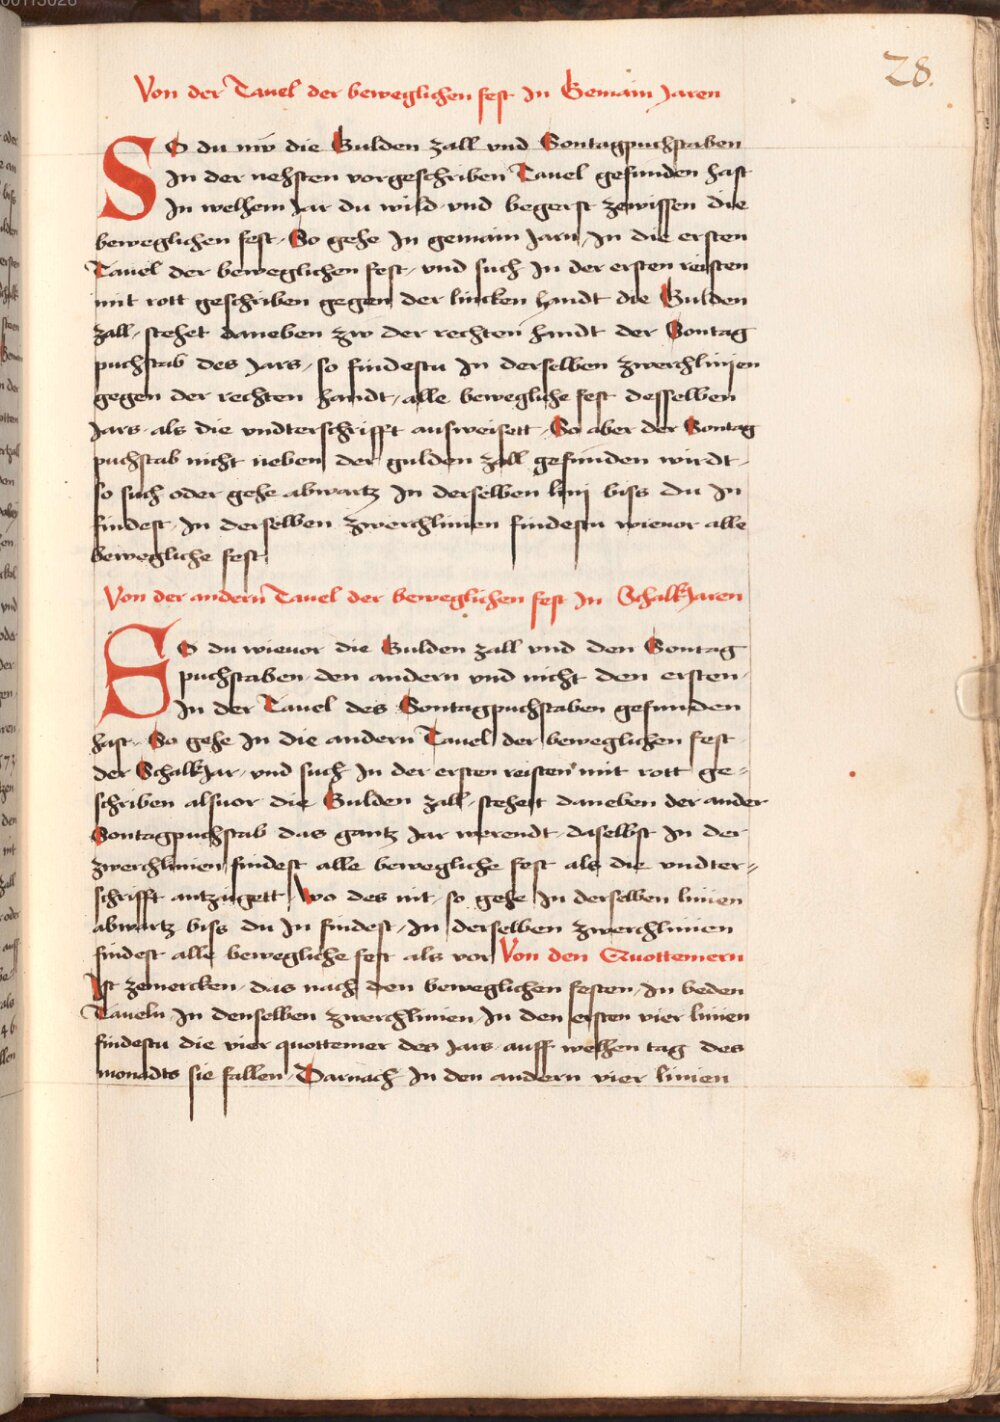 28.
Von der Tauel der beweglichen fest In Gemain Jaren
SO du nw die Gulden zall vnd Sontagpuchstaben
In der nehsten vorgeschriben Tauel gefunden hast
In welhem Jar du wild vnd begerst zewissen die
beweglichen fest, So gehe In gemain Jarn, In die ersten
Tauel der beweglichen fest, vnd such In der ersten reisten
mit rott geschriben gegen der lincken handt die Gulden
zall, stehet daneben zw der rechten handt der Sontag
puchstab des Jars, so findestu In derselben zwerchlinien
gegen der rechten handt, alle bewegliche fest desselben
Jars, als die vndterschrifft ausweisett, So aber der Sontag
puchstab nicht neben der gulden zall gefunden wirdt,
so such oder gehe abwartz In derselben linj biss du In
findest, In derselben zwerchlinien findestu wieuor alle
bewegliche fest
Von der andern Tauel der beweglichen fest In SchalkJaren
SO du wieuor die Gulden zall vnd den Sontag
puchstaben, den andern vnd nicht den ersten,
In der Tauel des Sontagpuchstaben gefunden
hast, So gehe In die andern Tauel der beweglichen fest
der SchalkJar, vnd such In der ersten reisten mit rott ge-
schriben alsuor die Gulden zall, stehett daneben der ander
Sontagpuchstab das gantz Jar werendt, daselbst In der
zwerchlinien findest alle bewegliche fest als die vndter-
schrifft antzaigett, Wo des nit, so gehe In derselben linien
abwartz biss du In findest, In derselben zwerchlinien
findest alle bewegliche fest als vor Von den Quottemern
Ist zemercken, das nach den beweglichen festen, In beden
Taueln In denselben zwerchlinien, In den ersten vier linien
findestu die vier quottemer des Jars, auff welhen tag des
monadts sie fallen, Darnach In den andern vier linien